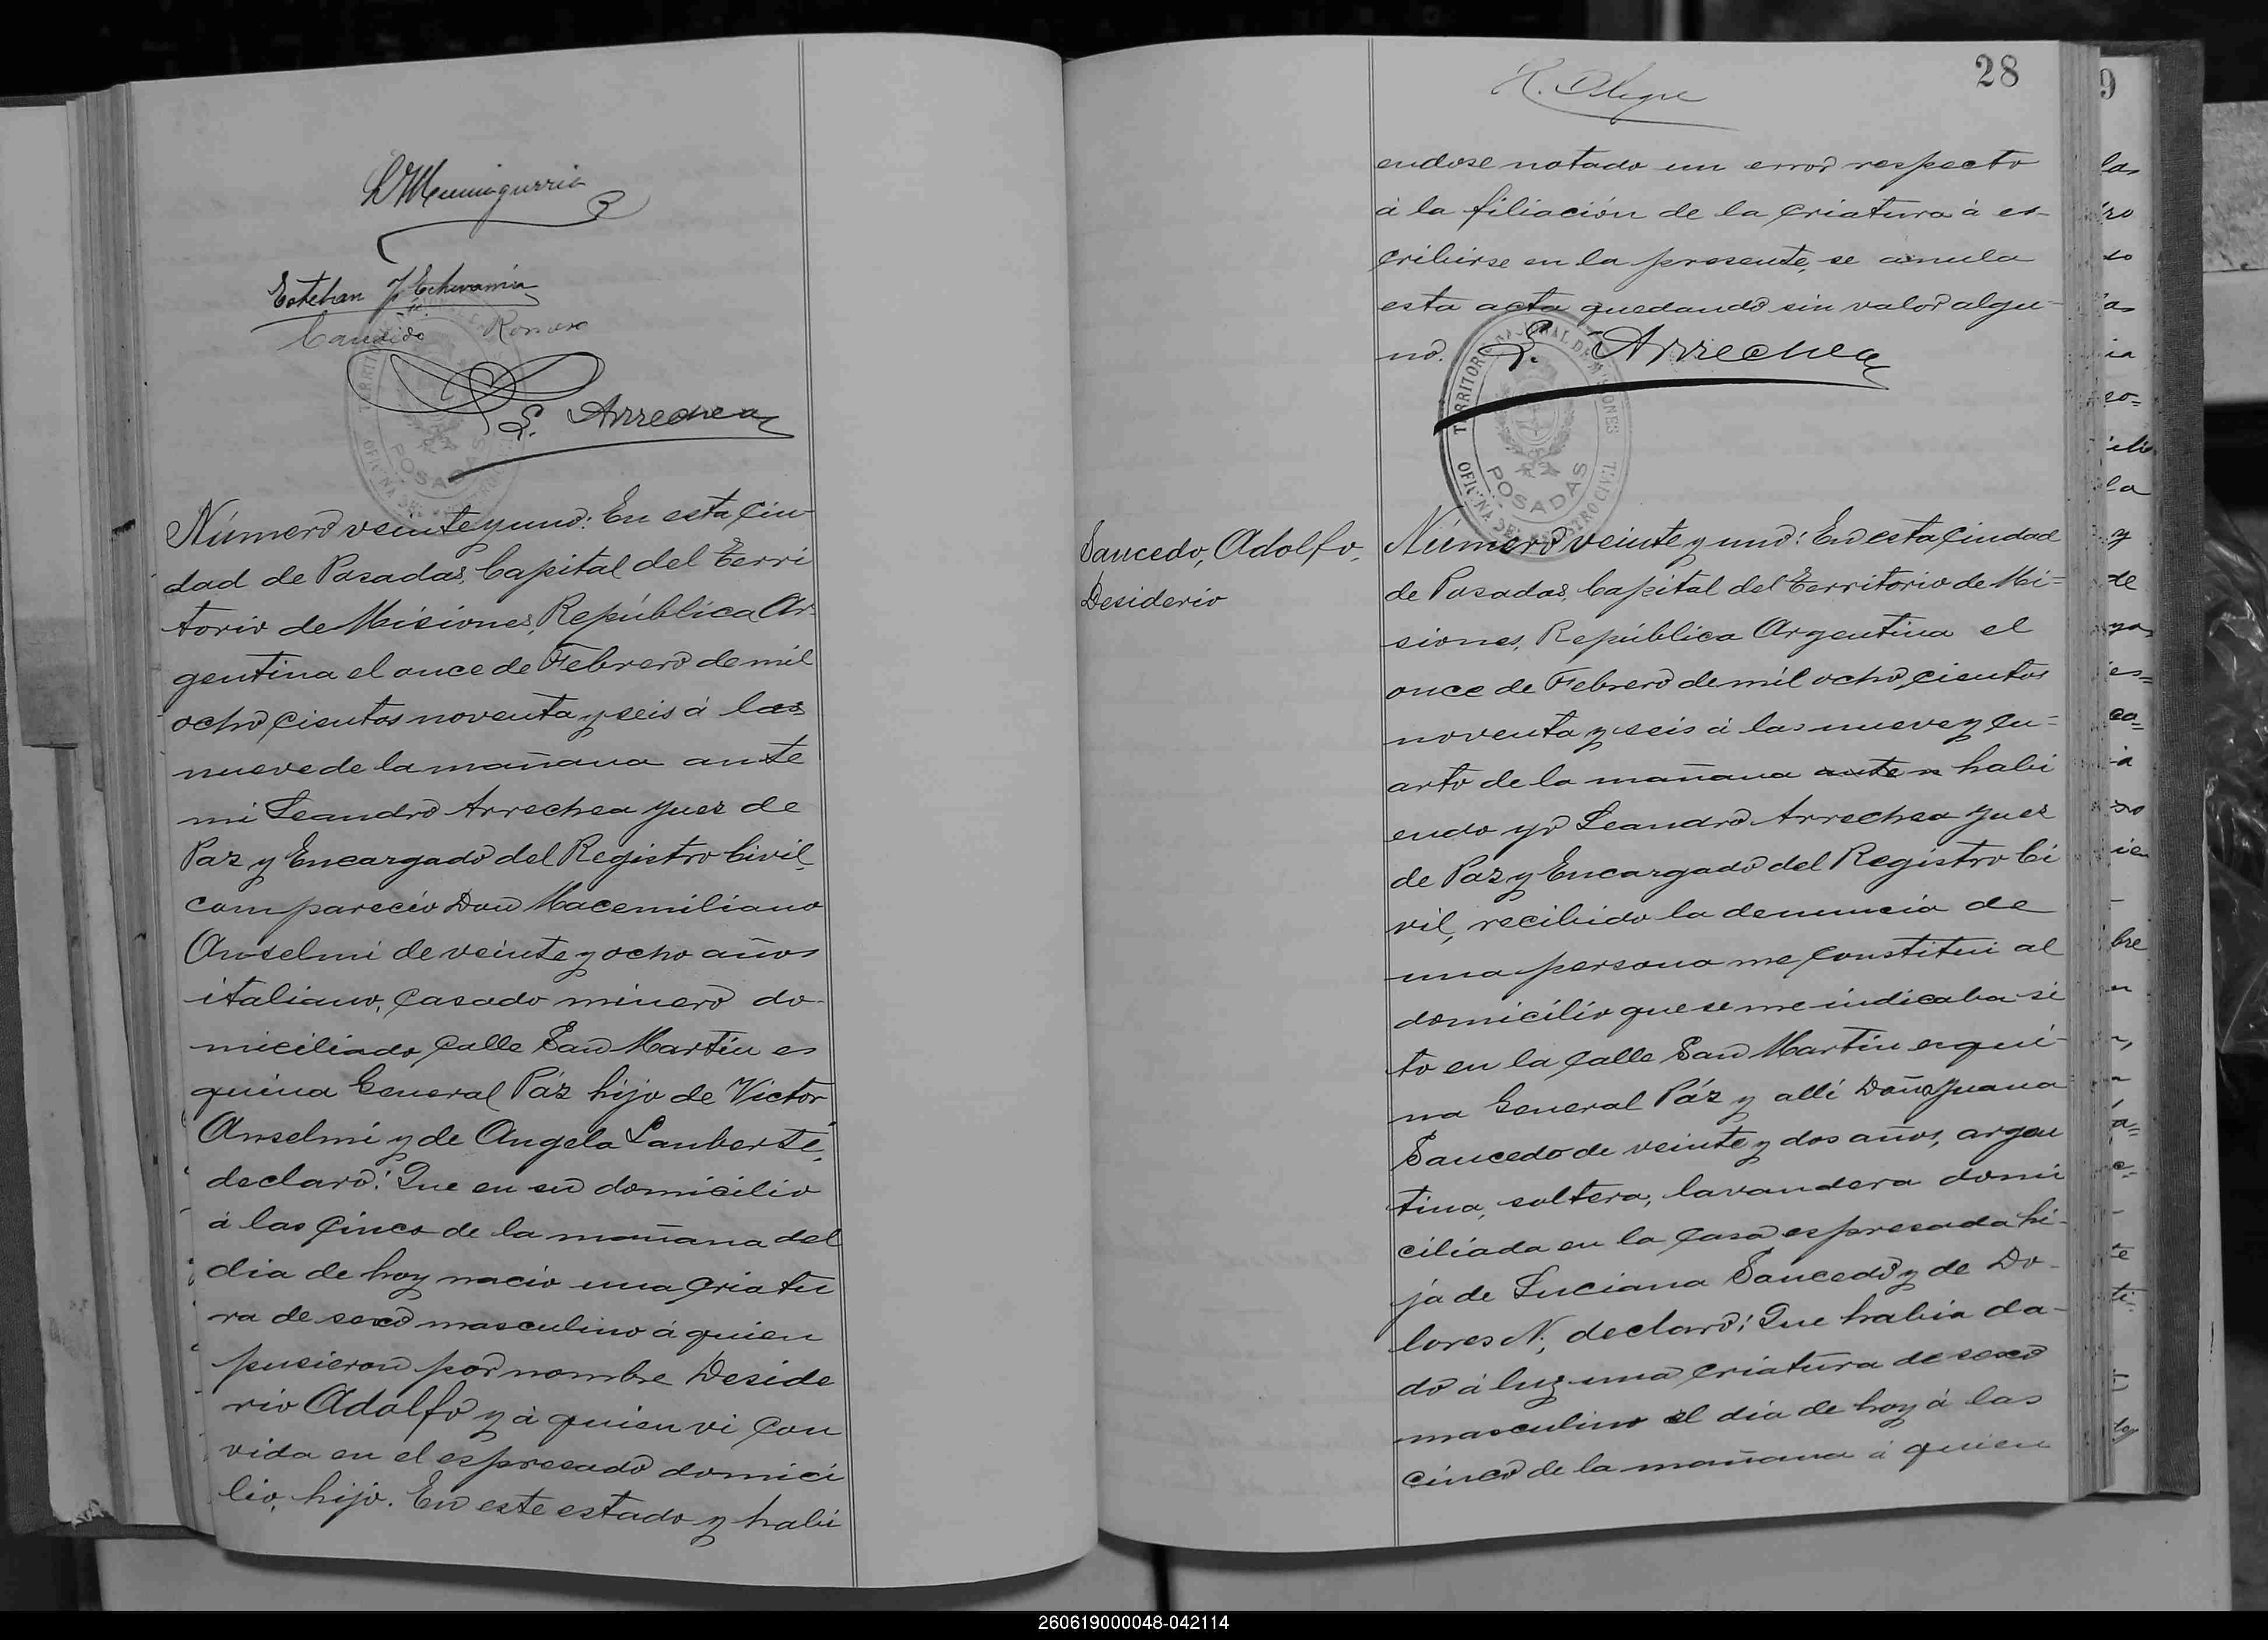 Esteban J. Echevarria
Candido Romero
L. Arrechea
TERRITORIO
POSADAS
Número veinte y uno: En esta Ciu-
dad de Posadas, Capital del Terri
torio de Misiones, República Ar-
gentina el once de Febrero de mil
ocho cientos noventa y seis á las
nueve de la mañana ante
mi Leandro Arrechea Juez de
Paz y Encargado del Registro Civil,
compareció Don Macemiliano
Anselmi de veinte y ocho años
italiano, casado minero do-
miciliado calle San Martin es
quina General Páz hijo de Victor
Anselmi y de Angela Lanberte,
declaró: Que en su domicilio
á las cinco de la mañana del
dia de hoy nació una criatu
ra de sexo masculino á quien
pusieron por nombre Deside
rio Adolfo y á quien vi con
vida en el espresado domici
lio, hijo. En este estado y habi
28
endose notado un error respecto
á la filiación de la criatura á es-
cribirse en la presente, se anula
esta acta quedando sin valor algu-
no. L. Arrechea
TERRITORIO NACIONAL DE MISIONES
OFICINA DEL REGISTRO CIVIL
POSADAS
Saucedo, Adolfo,
Desiderio
Número veinte y uno: En esta Ciudad
de Posadas, Capital del Territorio de Mi=
siones, República Argentina el
once de Febrero de mil ocho cientos
noventa y seis á las nueve y cu=
arto de la mañana ante habi
endo yo Leandro Arrechea Juez
de Paz y Encargado del Registro Ci
vil, recibido la denuncia de
una persona me constitui al
domicilio que se me indicaba si
to en la calle San Martin esqui-
na General Páz y allí Doña Juana
Saucedo de veinte y dos años, argen
tina, soltera, lavandera domi
ciliada en la casa espresada hi-
ja de Luciana Saucedo y de Do-
lores N, declaró: Que habia da-
do á luz una criatura de sexo
masculino el dia de hoy á las
cinco de la mañana á quien
260619000048-042114